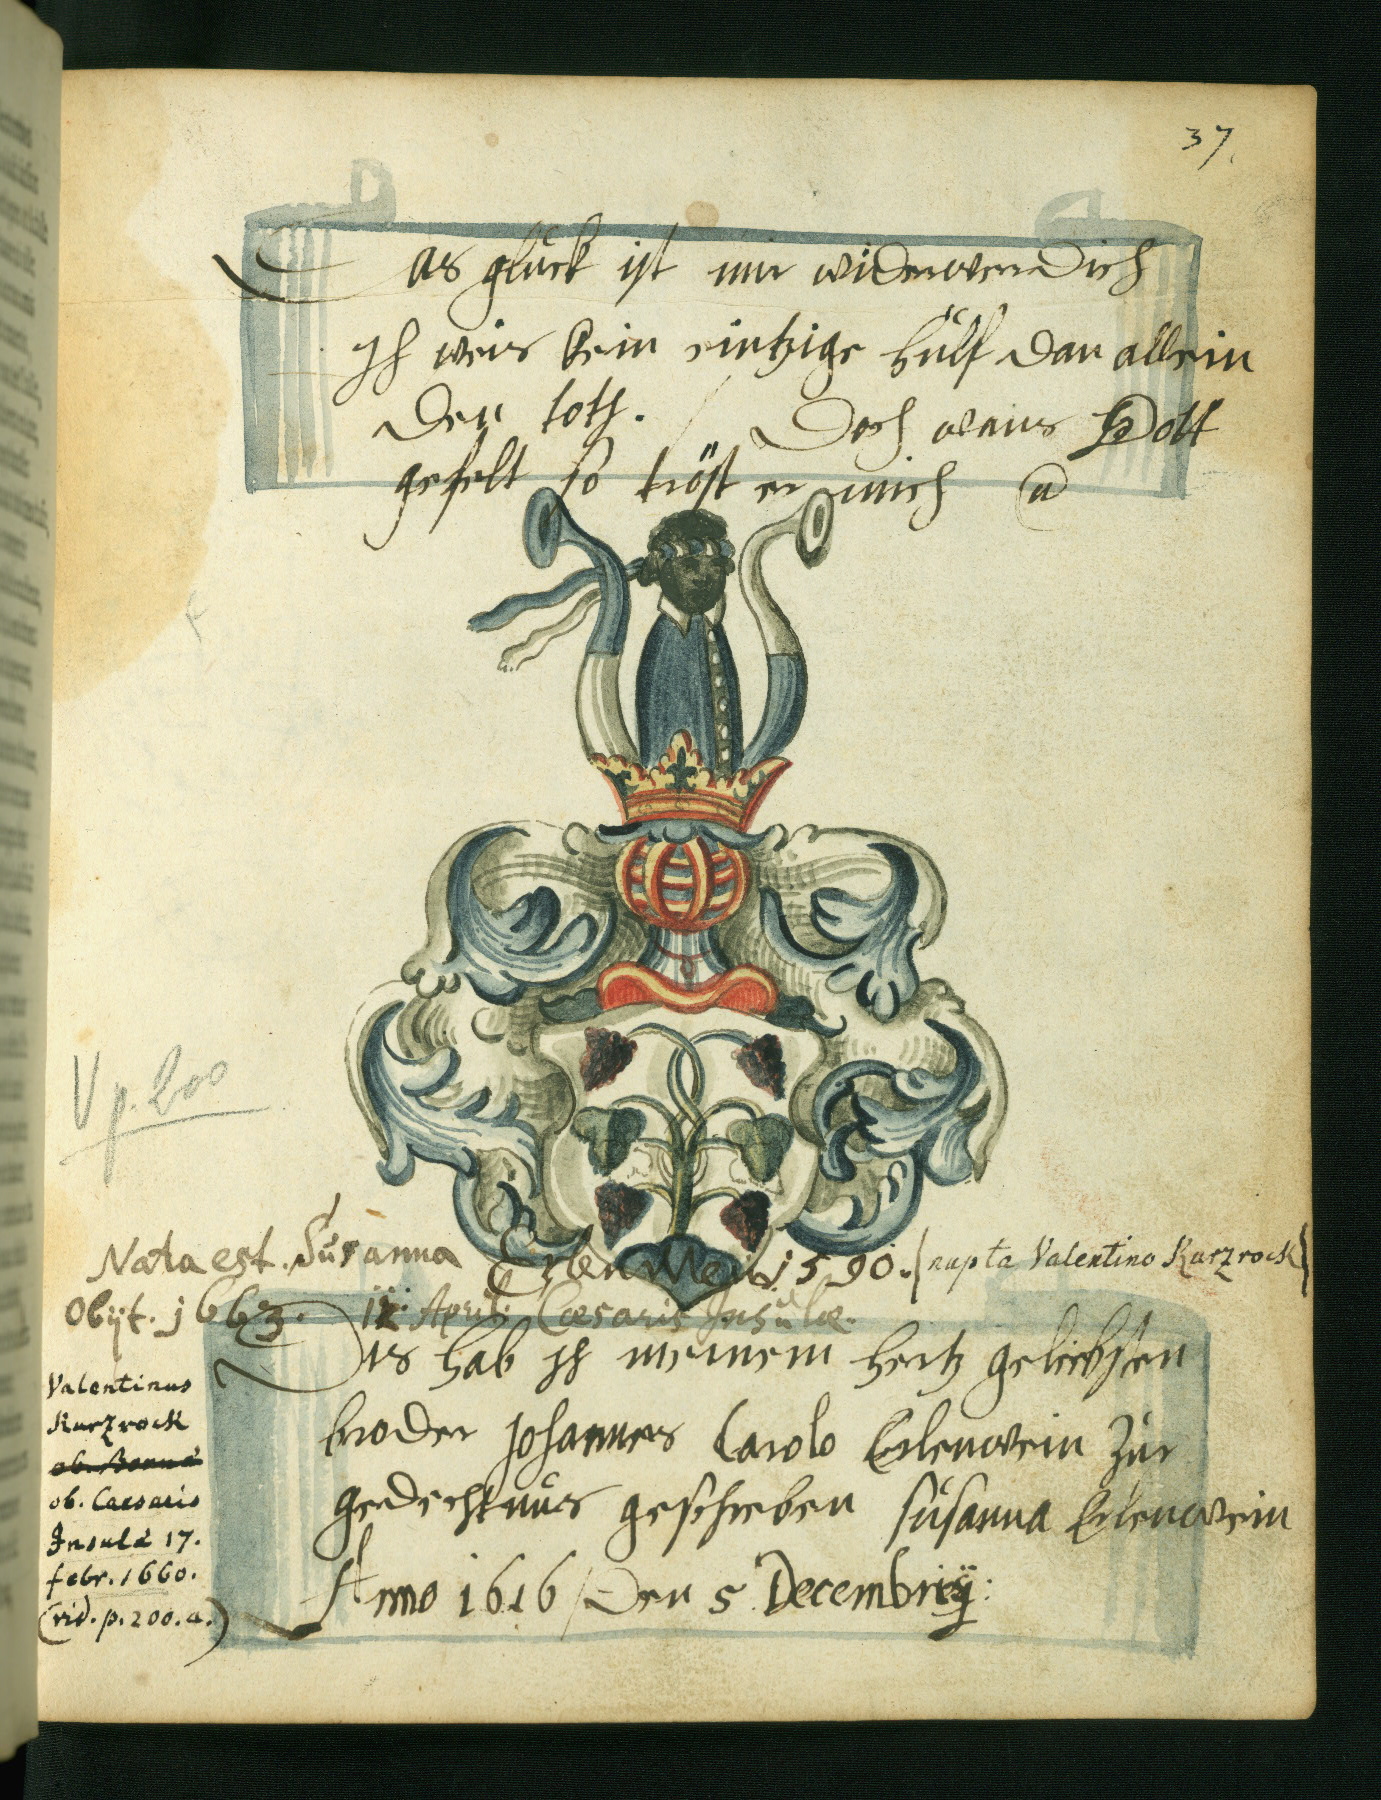 37.
Das glück ist mir widerwerdich
Jch weis kein eintzige hülf dan allein
den toth. / Doch wans Gott
gefelt so tröst er mich
V p. 200
Nata est. Susanna Erlenwein 1590. (nupta Valentino Kurzrock)
Obijt. 1663. April: Cæsaris Insulæ.
Dis hab ich meinem hertz geliebsten
broder Johannes Carolo Erlenwein zur
gedechtnus geschrieben susanna Erlenwein
Anno 1616 / Den 5 Decembris:
Valentinus
Kurzrock
ob. Bonnae
ob. Caesaris
Insulâ 17.
febr. 1660.
(vid. p. 200. a.)